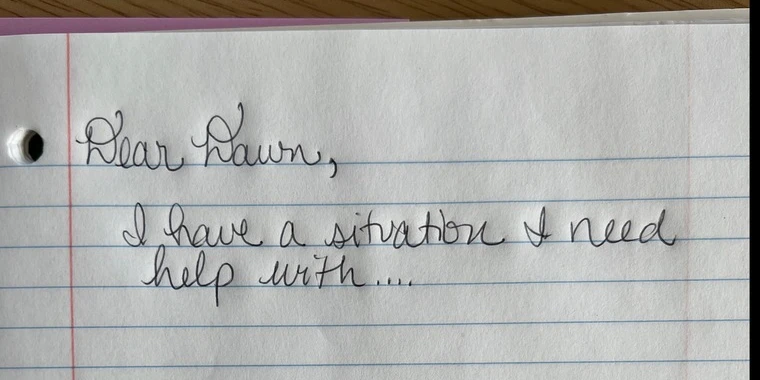 Dear Dawn,
I have a situation I need
help with....